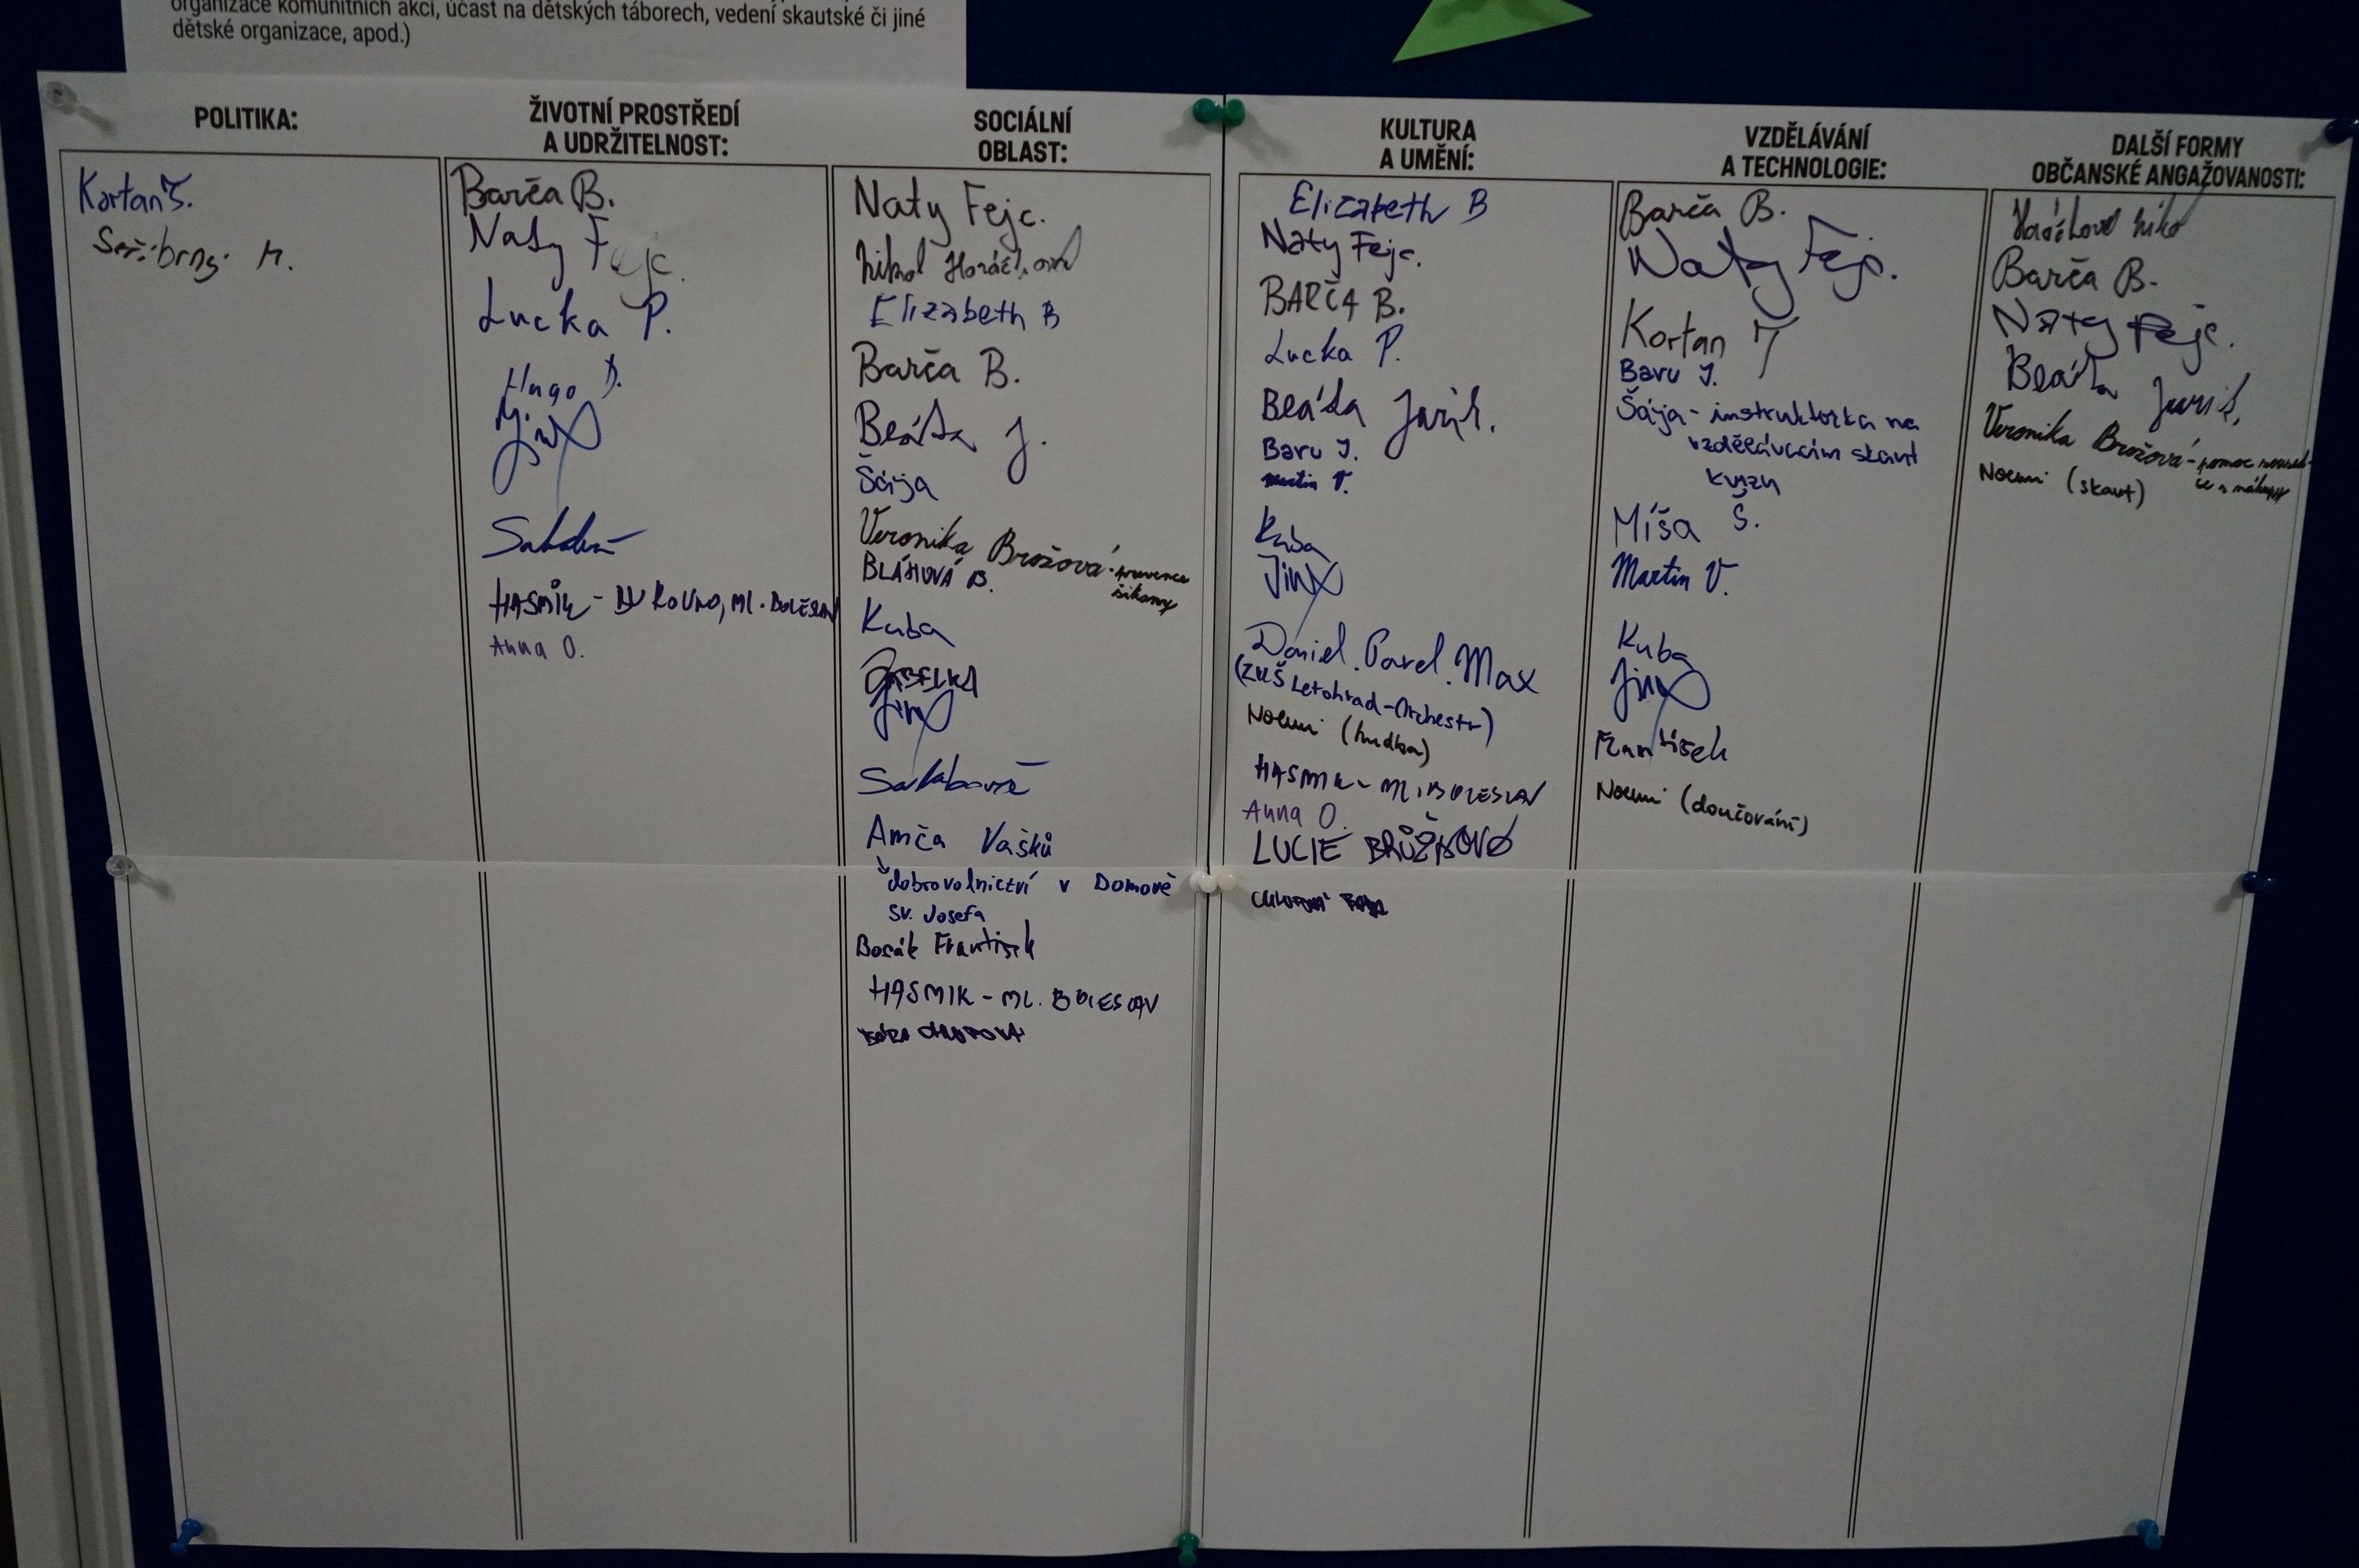 organizace komunitních akcí, účast na dětských táborech, vedení skautské či jiné
dětské organizace, apod.)
POLITIKA:
Kortan
M.
ŽIVOTNÍ PROSTŘEDÍ
A UDRŽITELNOST:
Barča B.
Naty Fejc.
Lucka P.
Hugo D.
Jinx
HASMIK - ML. BOLESLAV
Anna O.
SOCIÁLNÍ
OBLAST:
Naty Fejc.
Nikol Horáčková
Elizabeth B
Barča B.
Beáta J.
Šája
Veronika Brožová - prevence
šikany
BLÁHOVÁ B.
Kuba
Jinx
Amča Vašků
dobrovolnictví v Domově
sv. Josefa
František
HASMIK - ML. BOLESLAV
KULTURA
A UMĚNÍ:
Elizabeth B
Naty Fejc.
BARČA B.
Lucka P.
Beáta
Baru J.
Martin V.
Kuba
Jinx
Daniel. Pavel. Max
(ZUŠ Letohrad-Orchestr)
Noemi (hudba)
HASMIK - ML. BOLESLAV
Anna O.
LUCIE
VZDĚLÁVÁNÍ
A TECHNOLOGIE:
Barča B.
Naty Fejc.
Kortan
Baru J.
Šája - instruktorka na
vzdělávacím skaut
kurzu
Míša Š.
Martin V.
Kuba
Jinx
František
Noemi (doučování)
DALŠÍ FORMY
OBČANSKÉ ANGAŽOVANOSTI:
Barča B.
Naty Fejc.
Beáta
Veronika Brožová - pomoc
Noemi (skaut)